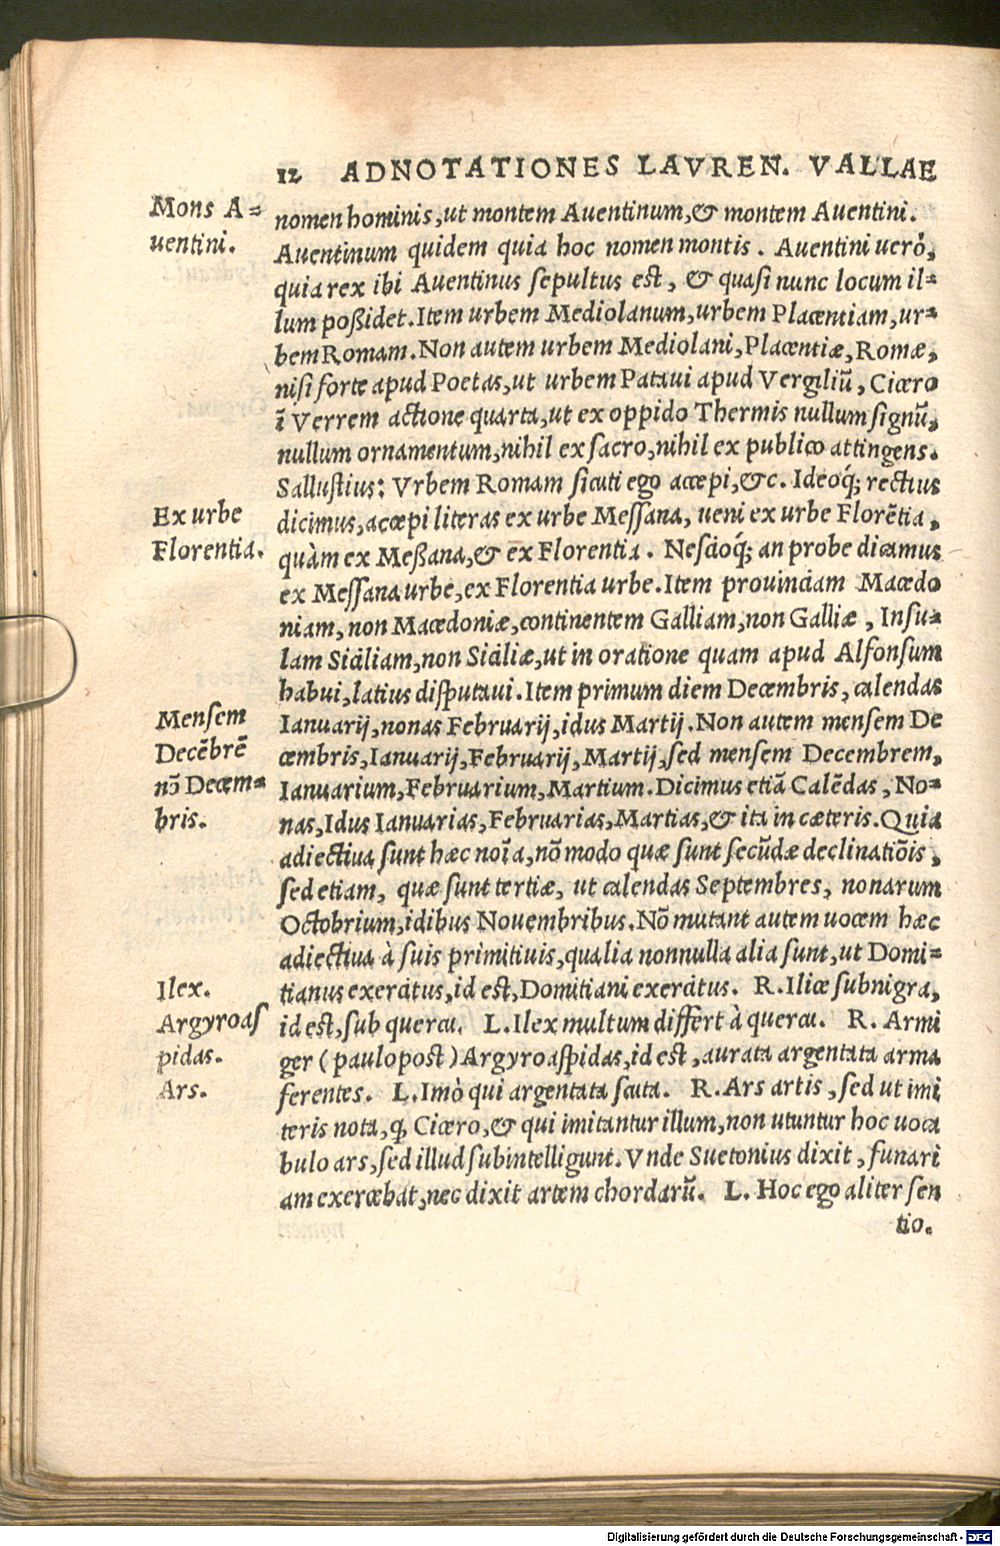 12 ADNOTATIONES LAVREN. VALLAE
Mons A=
uentini.
nomen hominis, ut montem Auentinum, & montem Auentini.
Auentinum quidem quia hoc nomen montis. Auentini uerò,
quia rex ibi Auentinus sepultus est, & quasi nunc locum il=
lum poßidet. Item urbem Mediolanum, urbem Placentiam, ur=
bem Romam. Non autem urbem Mediolani, Placentiæ, Romæ,
nisi forte apud Poetas, ut urbem Pataui apud Vergiliū, Cicero
ī Verrem actione quarta, ut ex oppido Thermis nullum signū,
nullum ornamentum, nihil ex sacro, nihil ex publico attingens.
Sallustius: Vrbem Romam sicuti ego accepi, &c. Ideoq́; rectius
Ex urbe
Florentia.
dicimus, accepi literas ex urbe Messana, ueni ex urbe Florētia,
quàm ex Meßana, & ex Florentia. Nescioq́; an probe dicamus
ex Messana urbe, ex Florentia urbe. Item prouinciam Macedo
niam, non Macedoniæ, continentem Galliam, non Galliæ, Insu=
lam Siciliam, non Siciliæ, ut in oratione quam apud Alfonsum
habui, latius disputaui. Item primum diem Decembris, calendas
Mensem
Decēbrē
nō Decem=
bris.
Ianuarij, nonas Februarij, idus Martij. Non autem mensem De
cembris, Ianuarij, Februarij, Martij, sed mensem Decembrem,
Ianuarium, Februarium, Martium. Dicimus etiā Calēdas, No=
nas, Idus Ianuarias, Februarias, Martias, & ita in cæteris. Quia
adiectiua sunt hæc noīa, nō modo quæ sunt secūdæ declinatiōis,
sed etiam, quæ sunt tertiæ, ut calendas Septembres, nonarum
Octobrium, idibus Nouembribus. Nō mutant autem uocem hæc
adiectiua à suis primitiuis, qualia nonnulla alia sunt, ut Domi=
Ilex.
Argyroas
pidas.
Ars.
tianus exercitus, id est, Domitiani exercitus. R. Ilice subnigra,
id est, sub quercu. L. Ilex multum differt à quercu. R. Armi
ger (paulo post) Argyroaspidas, id est, aurata argentata arma
ferentes. L. Imò qui argentata scuta. R. Ars artis, sed ut imi
teris nota, ꝙ Cicero, & qui imitantur illum, non utuntur hoc uoca
bulo ars, sed illud subintelligunt. Vnde Suetonius dixit, funari
am exercebat, nec dixit artem chordarū. L. Hoc ego aliter sen
tio.
Digitalisierung gefördert durch die Deutsche Forschungsgemeinschaft - DFG